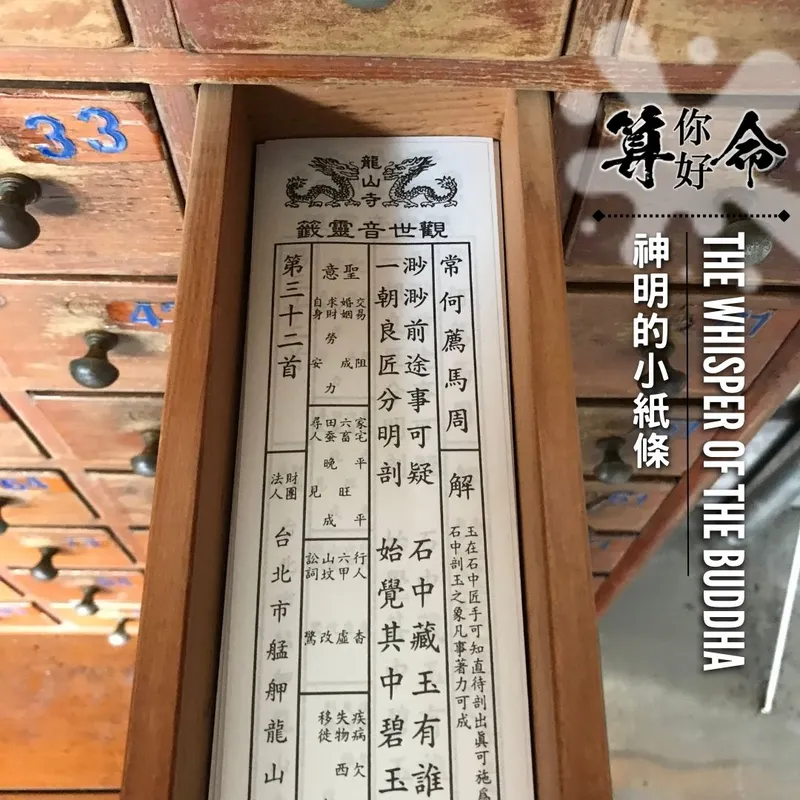 33
龍山寺
觀世音靈籤
常何薦馬周
解
玉在石中匠手可知直待剖出眞可施為
石中剖玉之象凡事著力可成
渺渺前途事可疑 石中藏玉有誰
一朝良匠分明剖 始覺其中碧玉
聖意
交易 阻
婚姻 成
求財 勞力
自身 安
家宅 平平
六畜 旺
田蚕 晚成
尋人 見
行人 杳
六甲 虛
山坟 改
訟詞 驚
疾病 欠
失物 西
移徙
第三十二首
財團法人 台北市艋舺龍山
64
算你好命
THE WHISPER OF THE BUDDHA
神明的小紙條